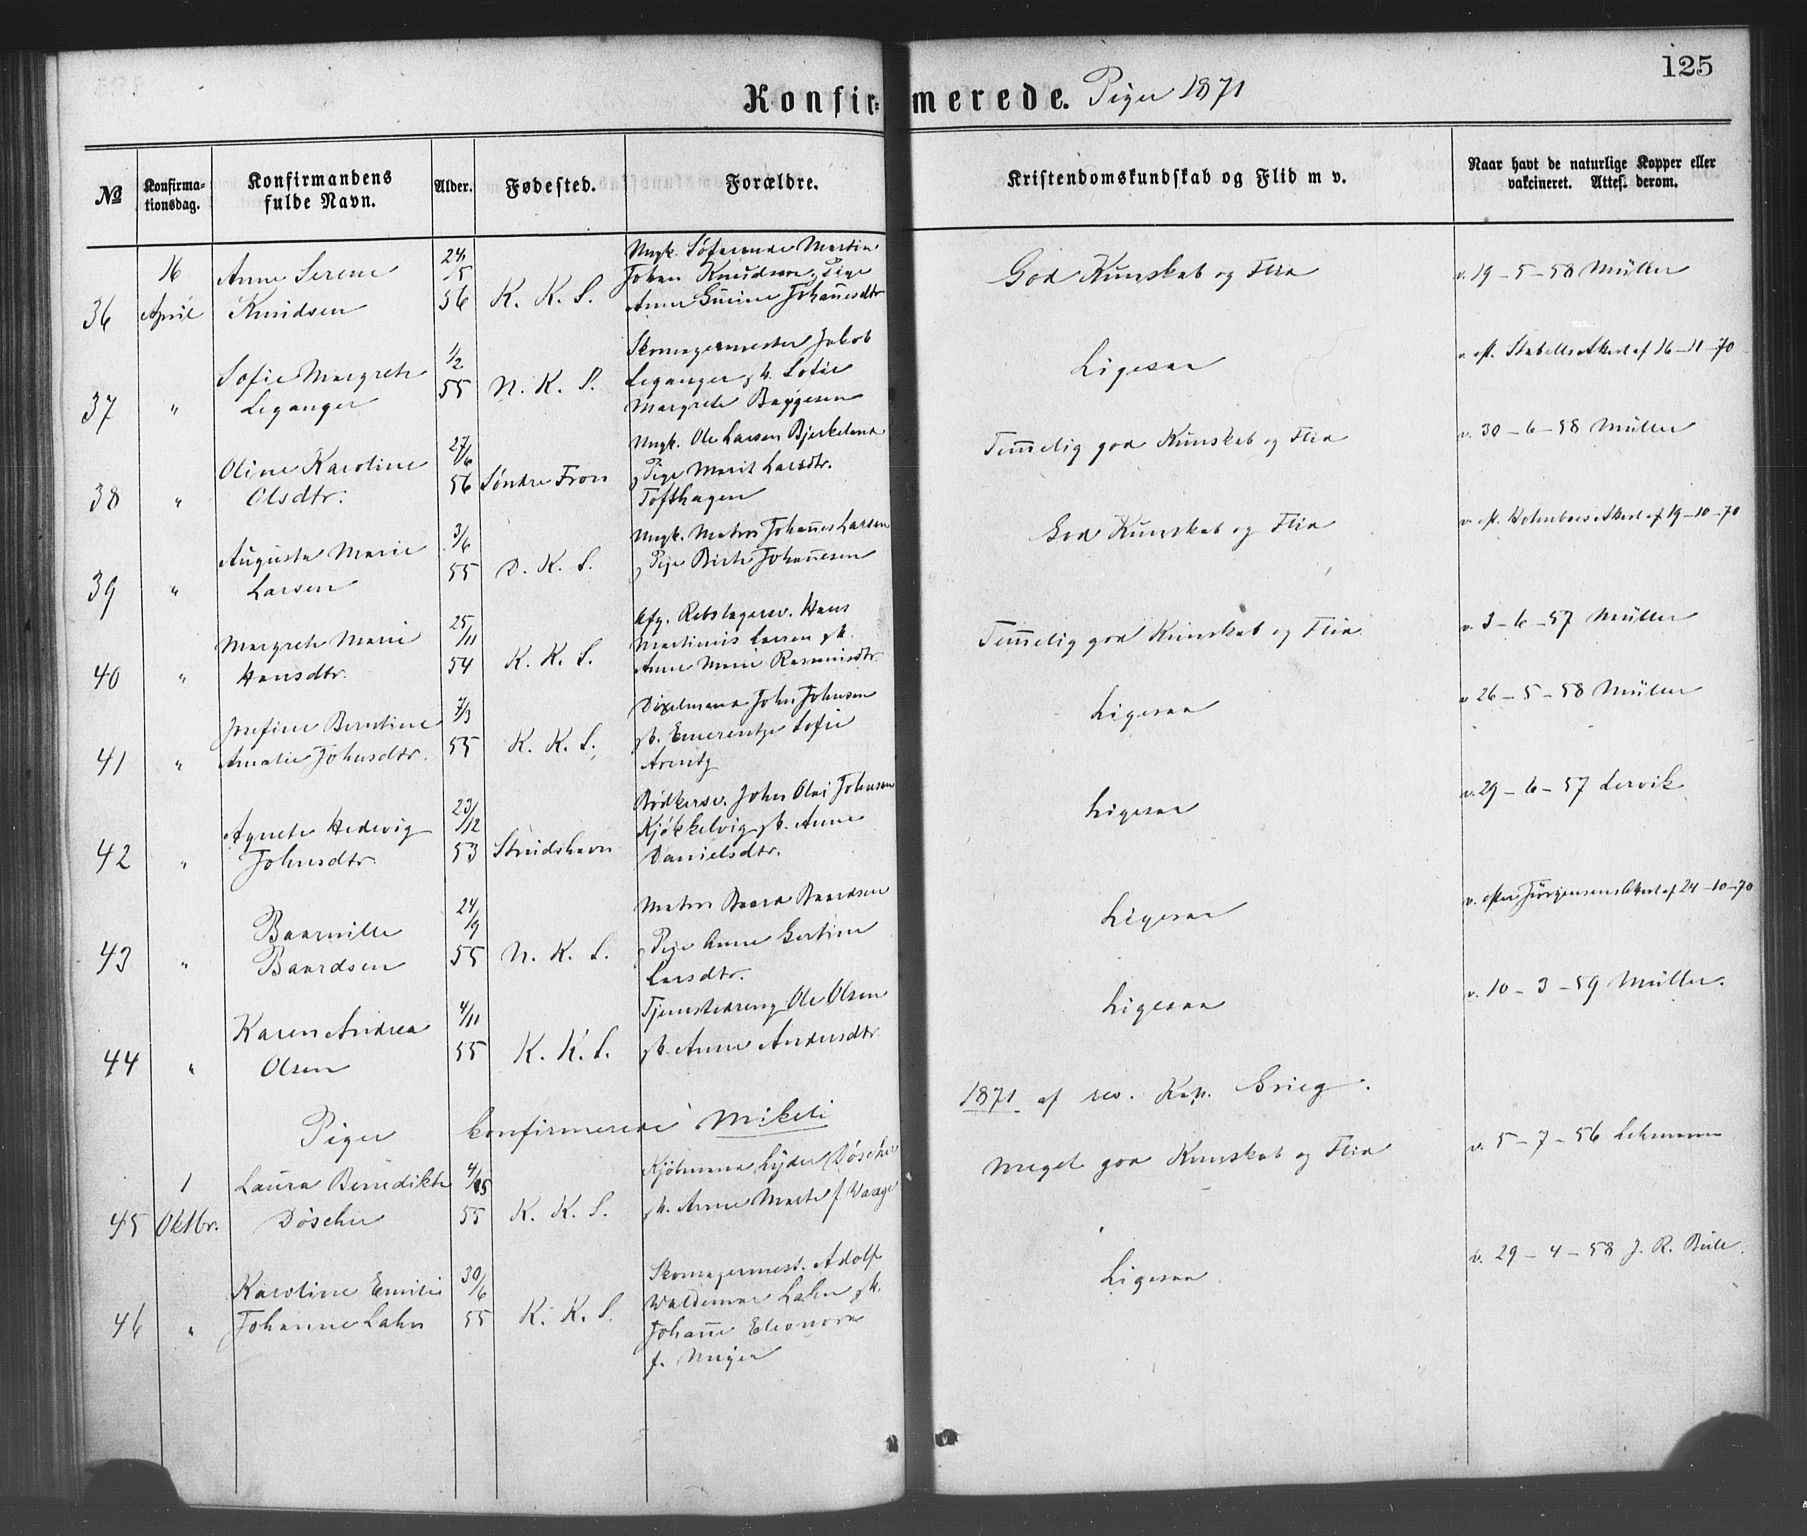 125
Konfirmerede. Piger 1871
№
Konfirma-
tionsdag.
Konfirmandens
fulde Navn.
Alder.
Fødested.
Forældre.
Kristendomskundskab og Flid m v.
Naar havt de naturlige Kopper eller
vakcineret. Attest derom.
36
16
April
Anne Serene
Knudsen
24/5
56
K. K. S.
Ungk. Søfarende Martin
Johan Knudsen, Pige
Anne Gurine Johañesdtr
God Kunskab og Flid
v. 19-5-58 Müller
37
"
Sofie Margrete
Leganger
1/2
55
N. K. S.
Skomagermester Jakob
Leganger gk. Sofie
Margrete Baggesen
Ligesaa
v. eft. Stabells Atkest af 16-11-70
38
"
Oline Karoline
Olsdtr.
27/6
56
Søndre Fron
Ungk. Ole Larsen Bjerkeland
Pige Marit Larsdtr.
Tofthagen
Tem̃elig god Kunskab og Flid
v. 30-6-58 Müller
39
"
Augusta Marie
Larsen
3/6
55
D. K. S.
Ungk. Matros Johañes Larsen
Pige Birte Johañesen
God Kunskab og Flid
v. eft. Holmboes Atkest af 19-10-70
40
"
Margrete Marie
Hansdtr.
25/11
54
K. K. S.
Afg. Rebslagersv. Hans
Martinus Larsen gk.
Anne Marie Rasmusdtr.
Tem̃elig god Kunskab og Flid
v. 3-6-57 Müller
41
"
Josefine Berntine
Amalie Johnsdtr.
7/3
55
K. K. S.
Dixelmand John Johnsen
gk. Emerentze Sofie
Arentz
Ligesaa
v. 26-5-58 Müller
42
"
Agnete Hedevig
Johnsdtr.
23/12
53
Strudshavn
Bødkersv. John Olai Johnsen
Kjøkkelvig gk. Anne
Danielsdtr.
Ligesaa
v. 29-6-57 Lervik
43
"
Baarnille
Baardsen
24/9
55
N. K. S.
Matros Baard Baardsen
Pige Anne Gertine
Larsdtr.
Ligesaa
v. efter Jürgensens Atkest af 24-10-70
44
"
Karen Andrea
Olsen
4/11
55
K. K. S.
Tjenestedreng Ole Olsen
gk. Anne Andersdtr
Ligesaa
v. 10-3-59 Müller.
Piger konfirmerede Mikeli 1871 af res. Kap. Grieg.
45
1
Oktbr.
Laura Benedikte
Døscher
55
K. K. S.
Kjøbmand Lyder Døscher
gk. Anne Marte f. Waage
Meget god Kunskab og Flid
v. 5-7-56 Lehmann
46
"
Karoline Emilie
Johanne Lahn
30/6
55
K. K. S.
Skomagermest. Adolf
Waldemar Lahn gk.
Johañe Eleonora
f. Meyer
Ligesaa
v. 29-4-58 J. R. Bull.